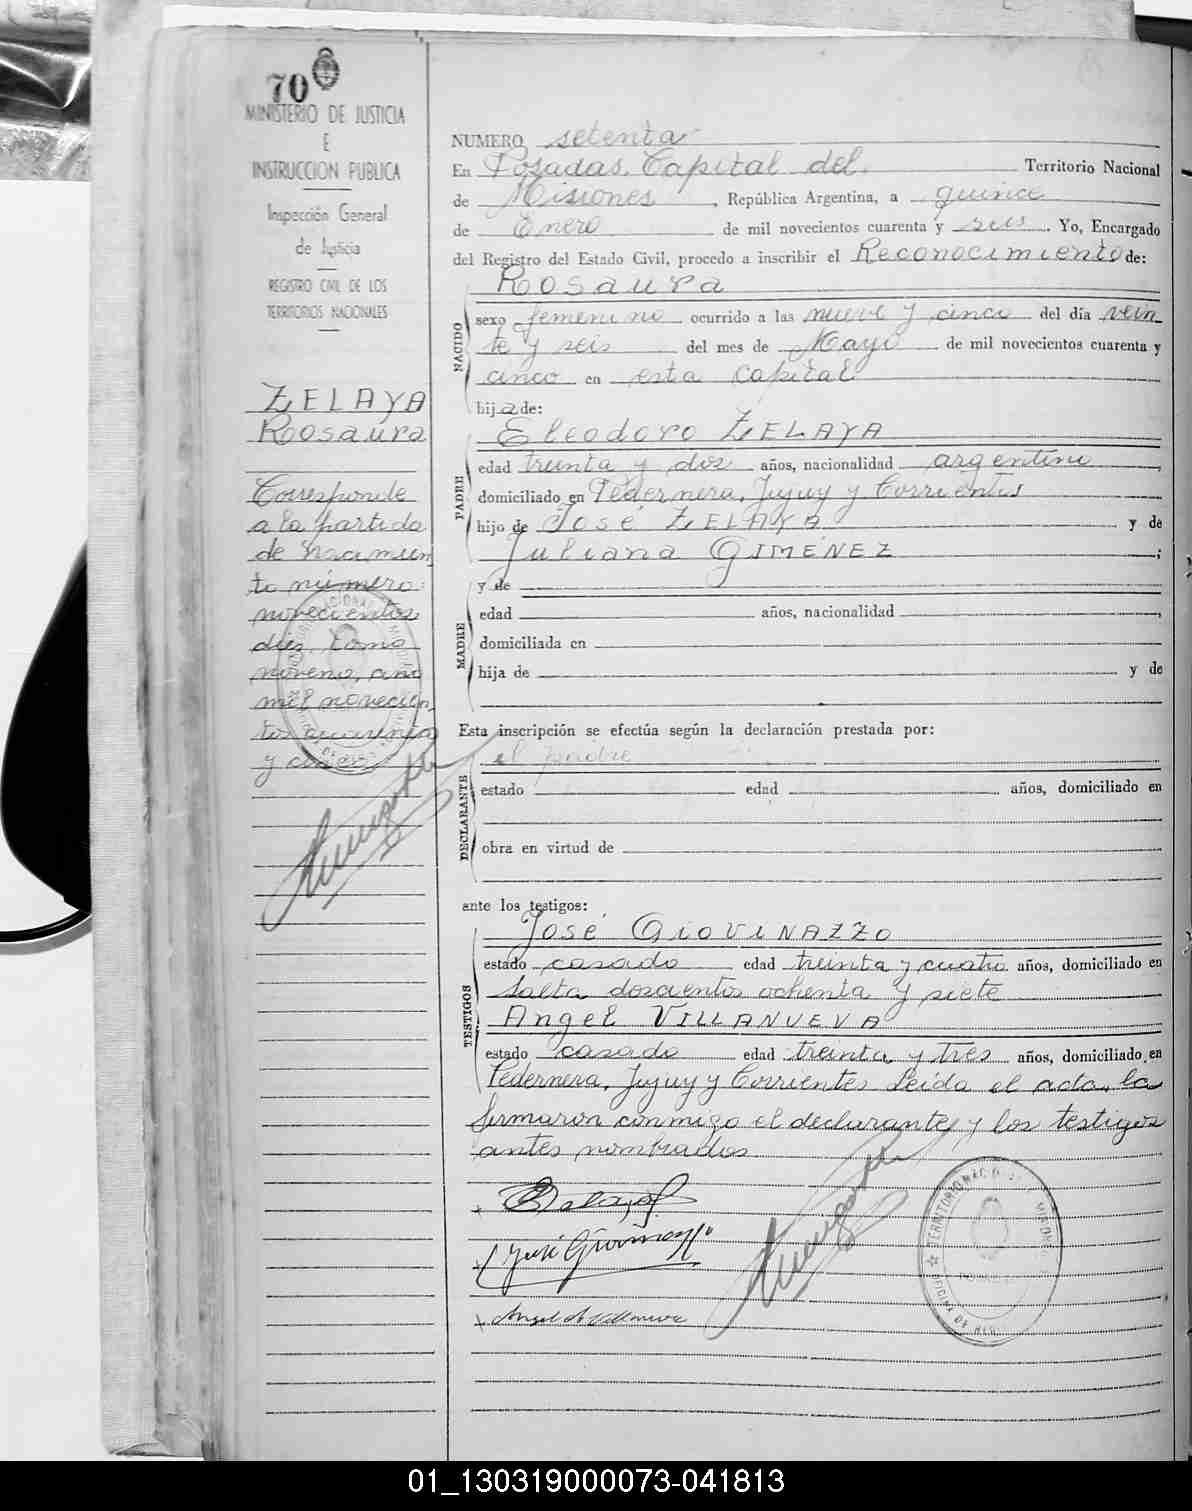 70
MINISTERIO DE JUSTICIA
E
INSTRUCCION PUBLICA
Inspección General
de Justicia
REGISTRO CIVIL DE LOS
TERRITORIOS NACIONALES
ZELAYA
Rosaura
Corresponde
a la partida
de nacimien
to número
novecientos
diez, tomo
noveno, año
mil novecien
tos cuarenta
y cinco
NUMERO setenta
En Posadas, Capital del Territorio Nacional
de Misiones, República Argentina, a quince
de Enero de mil novecientos cuarenta y seis. Yo, Encargado
del Registro del Estado Civil, procedo a inscribir el Reconocimiento de:
NACIDO
Rosaura
sexo femenino ocurrido a las nueve y cinco del día vein
te y seis del mes de Mayo de mil novecientos cuarenta y
cinco en esta capital
hija de:
PADRE
Eleodoro ZELAYA
edad treinta y dos años, nacionalidad argentino,
domiciliado en Pedernera, Jujuy y Corrientes
hijo de José ZELAYA y de
Juliana GIMÉNEZ;
MADRE
y de
edad años, nacionalidad,
domiciliada en
hija de y de
Esta inscripción se efectúa según la declaración prestada por:
DECLARANTE
el padre
estado edad años, domiciliado en
obra en virtud de
ante los testigos:
TESTIGOS
José GIOVINAZZO
estado casado edad treinta y cuatro años, domiciliado en
Salta doscientos ochenta y siete
Angel VILLANUEVA
estado casado edad treinta y tres años, domiciliado en
Pedernera, Jujuy y Corrientes Leída el acta, la
firmaron conmigo el declarante y los testigos
antes nombrados
01_130319000073-041813